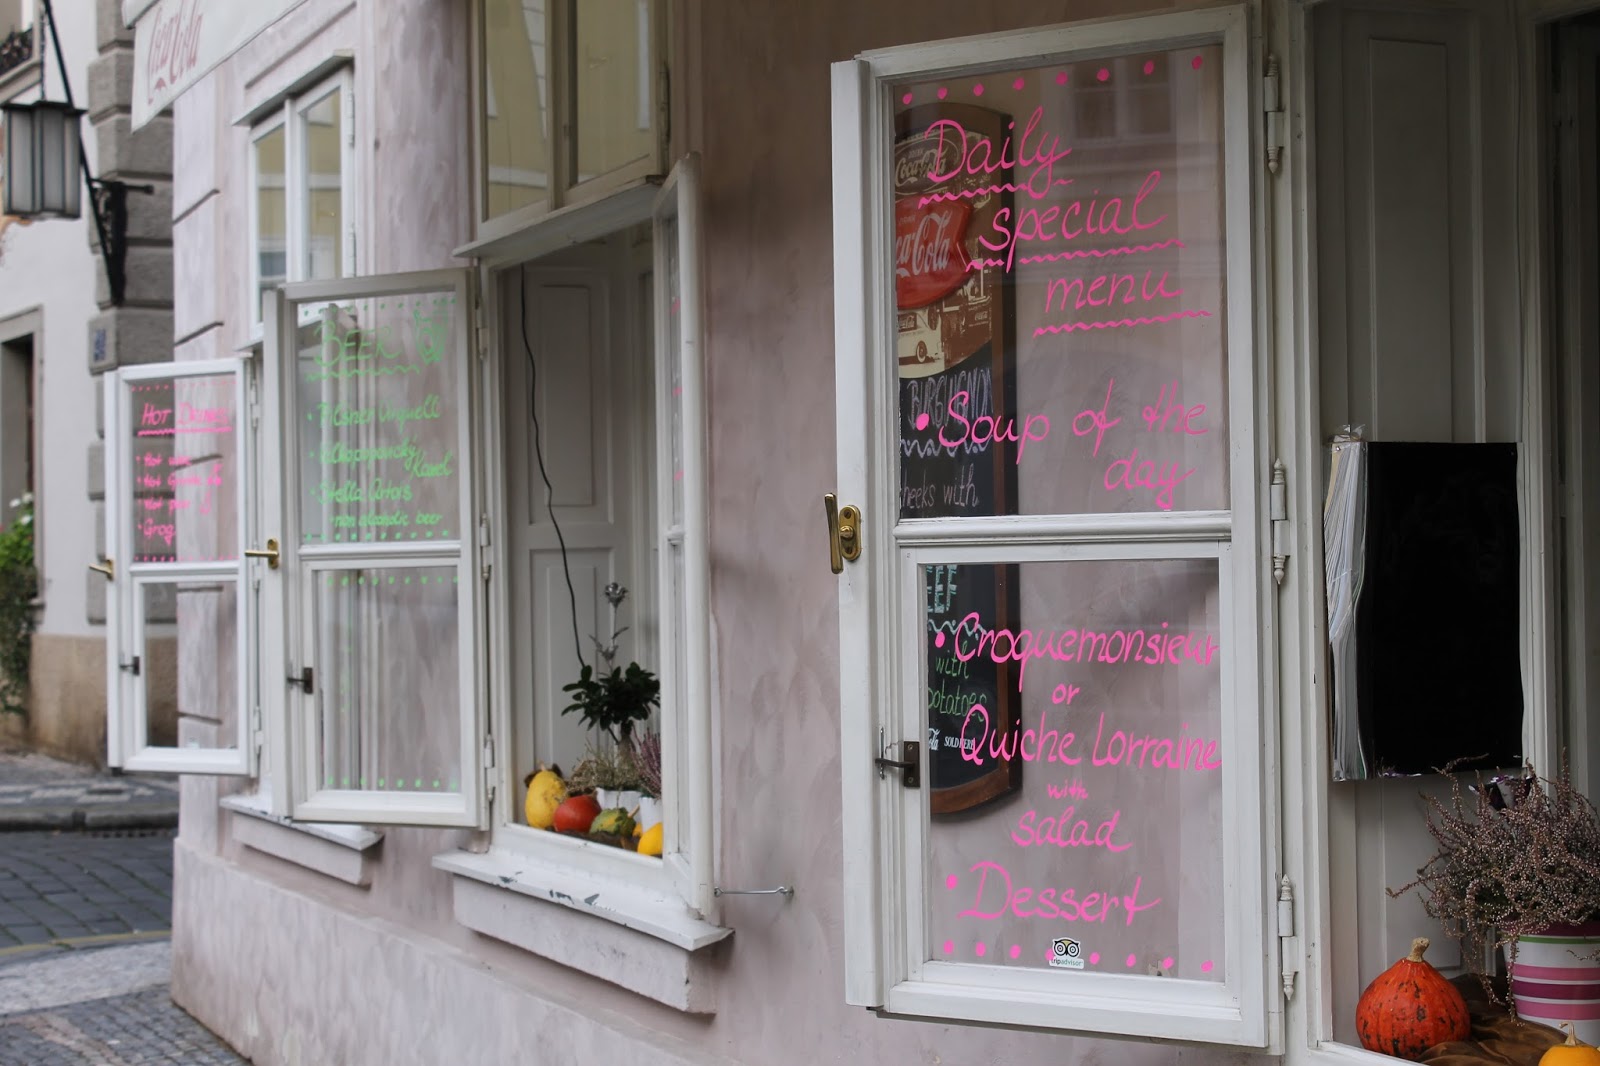 Coca-Cola
HOT DRINKS
• Hot wine
• Hot
• Hot pear
• Grog
BEER
• Pilsner Urquell
• Velkopopovický
Kozel
• Stella Artois
non alcoholic beer
Daily
special
menu
• Soup of the
day
• Croquemonsieur
or
Quiche Lorraine
with
salad
• Dessert
tripadvisor
Coca-Cola
Coca-Cola
BURGUIGNON
cheeks with
EEF
with
potatoes
SOLD HERE